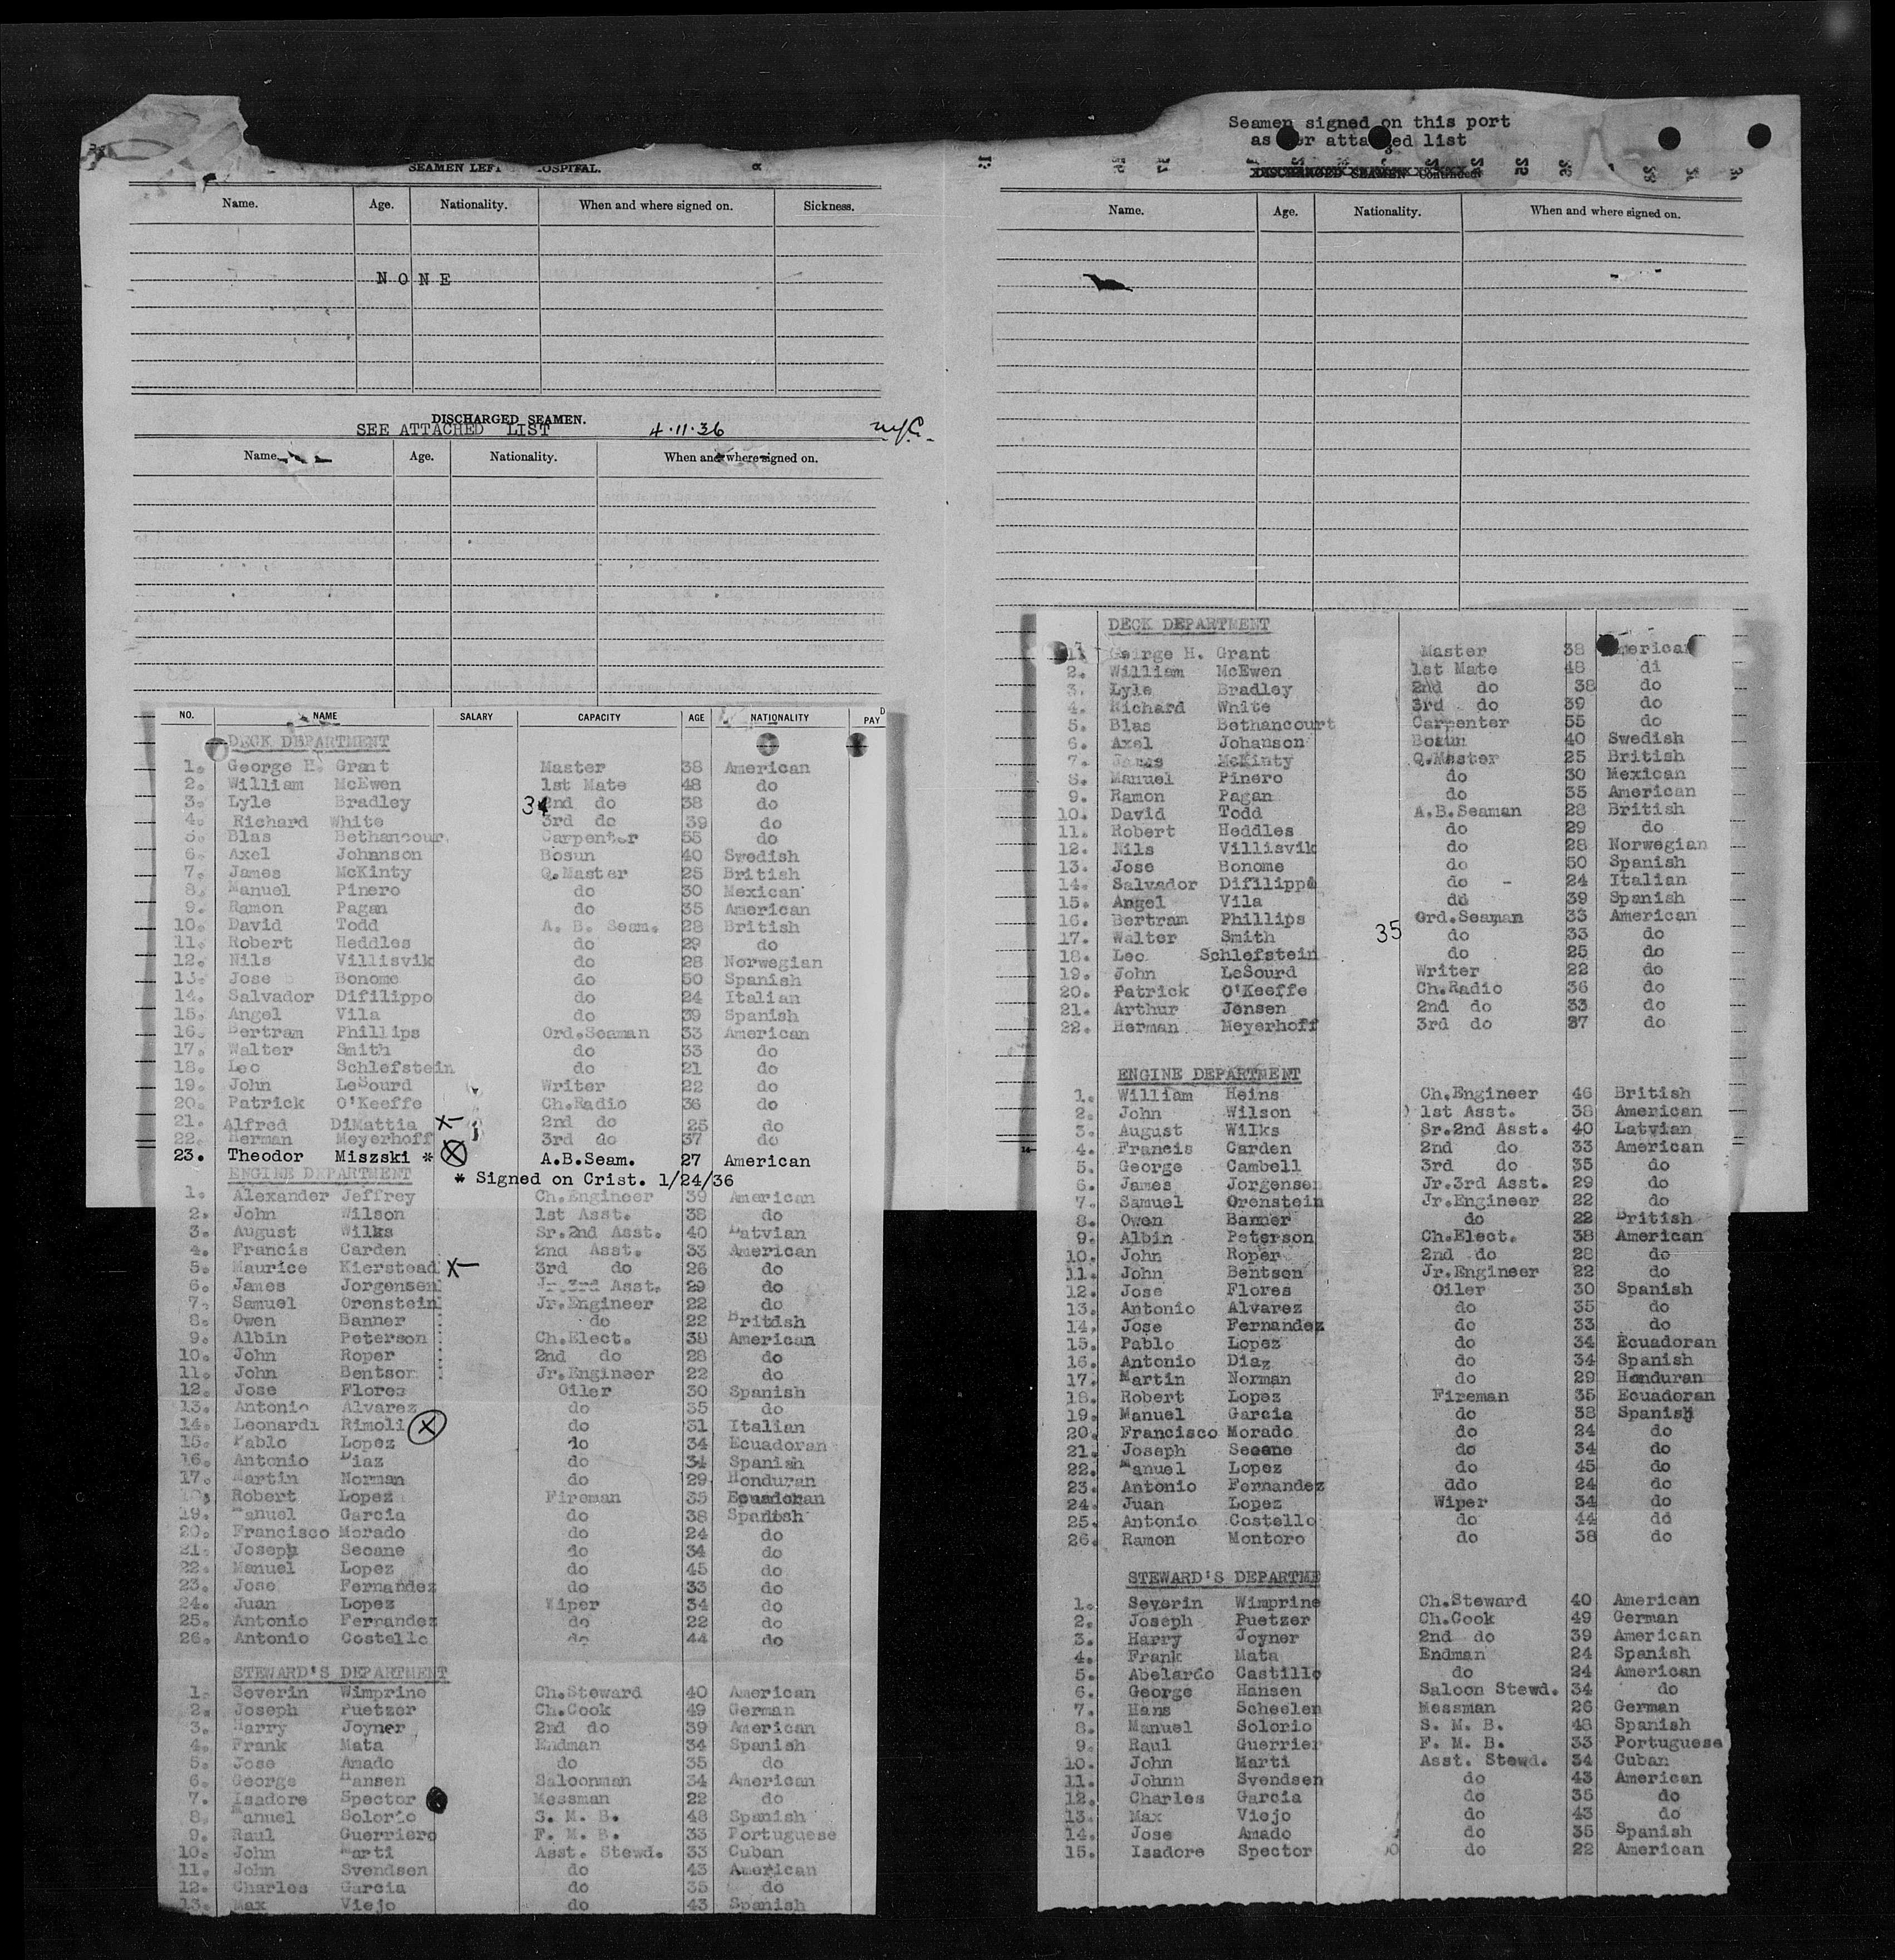 SEAMEN LEFT HOSPITAL.
Name. Age. Nationality. When and where signed on. Sickness.
NONE
DISCHARGED SEAMEN.
SEE ATTACHED LIST 4·11·36
Name Age. Nationality. When and where signed on.
NO. NAME SALARY CAPACITY AGE NATIONALITY PAY
DECK DEPARTMENT
1. George H. Grant Master 38 American
2. William McEwen 1st Mate 48 do
3. Lyle Bradley 34 2nd do 38 do
4. Richard White 3rd do 39 do
5. Blas Bethancour Carpenter 55 do
6. Axel Johanson Bosun 40 Swedish
7. James McKinty Q.Master 25 British
8. Manuel Pinero do 30 Mexican
9. Ramon Pagan do 35 American
10. David Todd A. B. Seam. 28 British
11. Robert Heddles do 29 do
12. Nils Villisvik do 28 Norwegian
13. Jose Bonome do 50 Spanish
14. Salvador Difilippo do 24 Italian
15. Angel Vila do 39 Spanish
16. Bertram Phillips Ord.Seaman 33 American
17. Walter Smith do 33 do
18. Leo Schlefstein do 21 do
19. John LeSourd Writer 22 do
20. Patrick O'Keeffe Ch.Radio 36 do
21. Alfred DiMattia X 2nd do 25 do
22. Herman Meyerhoff 3rd do 37 do
23. Theodor Miszski * X A.B.Seam. 27 American
ENGINE DEPARTMENT * Signed on Crist. 1/24/36
1. Alexander Jeffrey Ch.Engineer 39 American
2. John Wilson 1st Asst. 38 do
3. August Wilks Sr.2nd Asst. 40 Latvian
4. Francis Carden 2nd Asst. 33 American
5. Maurice Kierstead X 3rd do 26 do
6. James Jorgensen Jr 3rd Asst. 29 do
7. Samuel Orenstein Jr.Engineer 22 do
8. Owen Banner do 22 British
9. Albin Peterson Ch.Elect. 38 American
10. John Roper 2nd do 28 do
11. John Bentson Jr.Engineer 22 do
12. Jose Flores Oiler 30 Spanish
13. Antonio Alvarez do 35 do
14. Leonardi Rimoli X do 31 Italian
15. Pablo Lopez do 34 Ecuadoran
16. Antonio Diaz do 34 Spanish
17. Martin Norman do 29 Honduran
18. Robert Lopez Fireman 35 Ecuadoran
19. Manuel Garcia do 38 Spanish
20. Francisco Morado do 24 do
21. Joseph Seoane do 34 do
22. Manuel Lopez do 45 do
23. Jose Fernandez do 33 do
24. Juan Lopez Wiper 34 do
25. Antonio Fernandez do 22 do
26. Antonio Costello do 44 do
STEWARD'S DEPARTMENT
1. Severin Wimprine Ch.Steward 40 American
2. Joseph Puetzer Ch.Cook 49 German
3. Harry Joyner 2nd do 39 American
4. Frank Mata Endman 34 Spanish
5. Jose Amado do 35 do
6. George Hansen Saloonman 34 American
7. Isadore Spector Messman 22 do
8. Manuel Solorio S. M. B. 48 Spanish
9. Raul Guerriero F. M. B. 33 Portuguese
10. John Marti Asst. Stewd. 33 Cuban
11. John Svendsen do 43 American
12. Charles Garcia do 35 do
13. Max Viejo do 43 Spanish
Seamen signed on this port
as per attached list
DISCHARGED SEAMEN Continued
Name. Age. Nationality. When and where signed on.
DECK DEPARTMENT
1. George H. Grant Master 38 American
2. William McEwen 1st Mate 48 di
3. Lyle Bradley 2nd do 38 do
4. Richard White 3rd do 39 do
5. Blas Bethancourt Carpenter 55 do
6. Axel Johanson Bosun 40 Swedish
7. James McKinty Q.Master 25 British
8. Manuel Pinero do 30 Mexican
9. Ramon Pagan do 35 American
10. David Todd A.B.Seaman 28 British
11. Robert Heddles do 29 do
12. Nils Villisvik do 28 Norwegian
13. Jose Bonome do 50 Spanish
14. Salvador Difilippo do - 24 Italian
15. Angel Vila do 39 Spanish
16. Bertram Phillips Ord.Seaman 33 American
17. Walter Smith 35 do 33 do
18. Leo Schlefstein do 25 do
19. John LeSourd Writer 22 do
20. Patrick O'Keeffe Ch.Radio 36 do
21. Arthur Jensen 2nd do 33 do
22. Herman Meyerhoff 3rd do 37 do
ENGINE DEPARTMENT
1. William Heins Ch.Engineer 46 British
2. John Wilson 1st Asst. 38 American
3. August Wilks Sr.2nd Asst. 40 Latvian
4. Francis Carden 2nd do 33 American
5. George Cambell 3rd do 35 do
6. James Jorgensen Jr.3rd Asst. 29 do
7. Samuel Orenstein Jr.Engineer 22 do
8. Owen Banner do 22 British
9. Albin Peterson Ch.Elect. 38 American
10. John Roper 2nd do 28 do
11. John Bentson Jr.Engineer 22 do
12. Jose Flores Oiler 30 Spanish
13. Antonio Alvarez do 35 do
14. Jose Fernandez do 33 do
15. Pablo Lopez do 34 Ecuadoran
16. Antonio Diaz do 34 Spanish
17. Martin Norman do 29 Honduran
18. Robert Lopez Fireman 35 Ecuadoran
19. Manuel Garcia do 38 Spanish
20. Francisco Morado do 24 do
21. Joseph Seoane do 34 do
22. Manuel Lopez do 45 do
23. Antonio Fernandez ddo 24 do
24. Juan Lopez Wiper 34 do
25. Antonio Costello do 44 do
26. Ramon Montoro do 38 do
STEWARD'S DEPARTME
1. Severin Wimprine Ch.Steward 40 American
2. Joseph Puetzer Ch.Cook 49 German
3. Harry Joyner 2nd do 39 American
4. Frank Mata Endman 24 Spanish
5. Abelardo Castillo do 24 American
6. George Hansen Saloon Stewd. 34 do
7. Hans Scheelen Messman 26 German
8. Manuel Solorio S. M. B. 48 Spanish
9. Raul Guerrier F. M. B. 33 Portuguese
10. John Marti Asst. Stewd. 34 Cuban
11. Johnn Svendsen do 43 American
12. Charles Garcia do 35 do
13. Max Viejo do 43 do
14. Jose Amado do 35 Spanish
15. Isadore Spector do 22 American